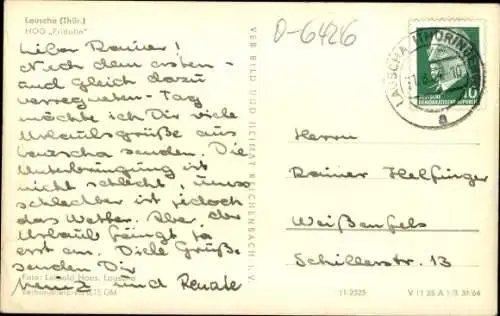 Lauscha (Thür.)
HOG „Fridolin"
D-6426
Lieber Rainer!
Nach dem ersten -
und gleich dazu
verregneten - Tag
möchte ich Dir viele
Urlaubsgrüße aus
Lauscha senden. Die
Unterbringung ist
nicht schlecht, umso
schlechter ist jedoch
das Wetter. Aber der
Urlaub fängt ja
erst an. Viele Grüße
senden Dir
Heinz und Renate
Foto: Hans, Lauscha
VEB BILD UND HEIMAT REICHENBACH I. V.
LAUSCHA (THÜRING
a
10
DEUTSCHE
DEMOKRATISCHE REPUBLIK
Herrn
Rainer Helfinger
Weißenfels
Schillerstr. 13
11-2525
V 11 28 A 1/B 39/64